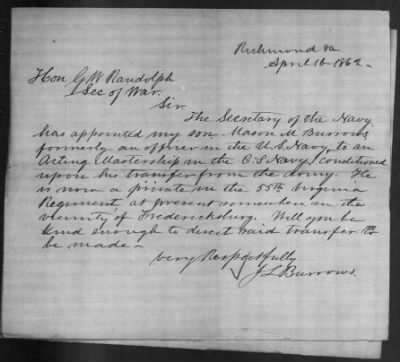 Richmond Va
April 16 1862
Hon G W Randolph
Sec of War.
Sir
The Secretary of the Navy,
has appointed my son Mason M Burrows,
formerly an officer in the U.S. Navy, to an
Acting Mastership in the C.S. Navy, conditioned
upon his transfer from the Army. He
is now a private in the 55th Virginia
Regiment, at present somewhere in the
vicinity of Fredericksburg. Will you be
kind enough to direct said transfer to
be made—
Very Respectfully
J L Burrows.